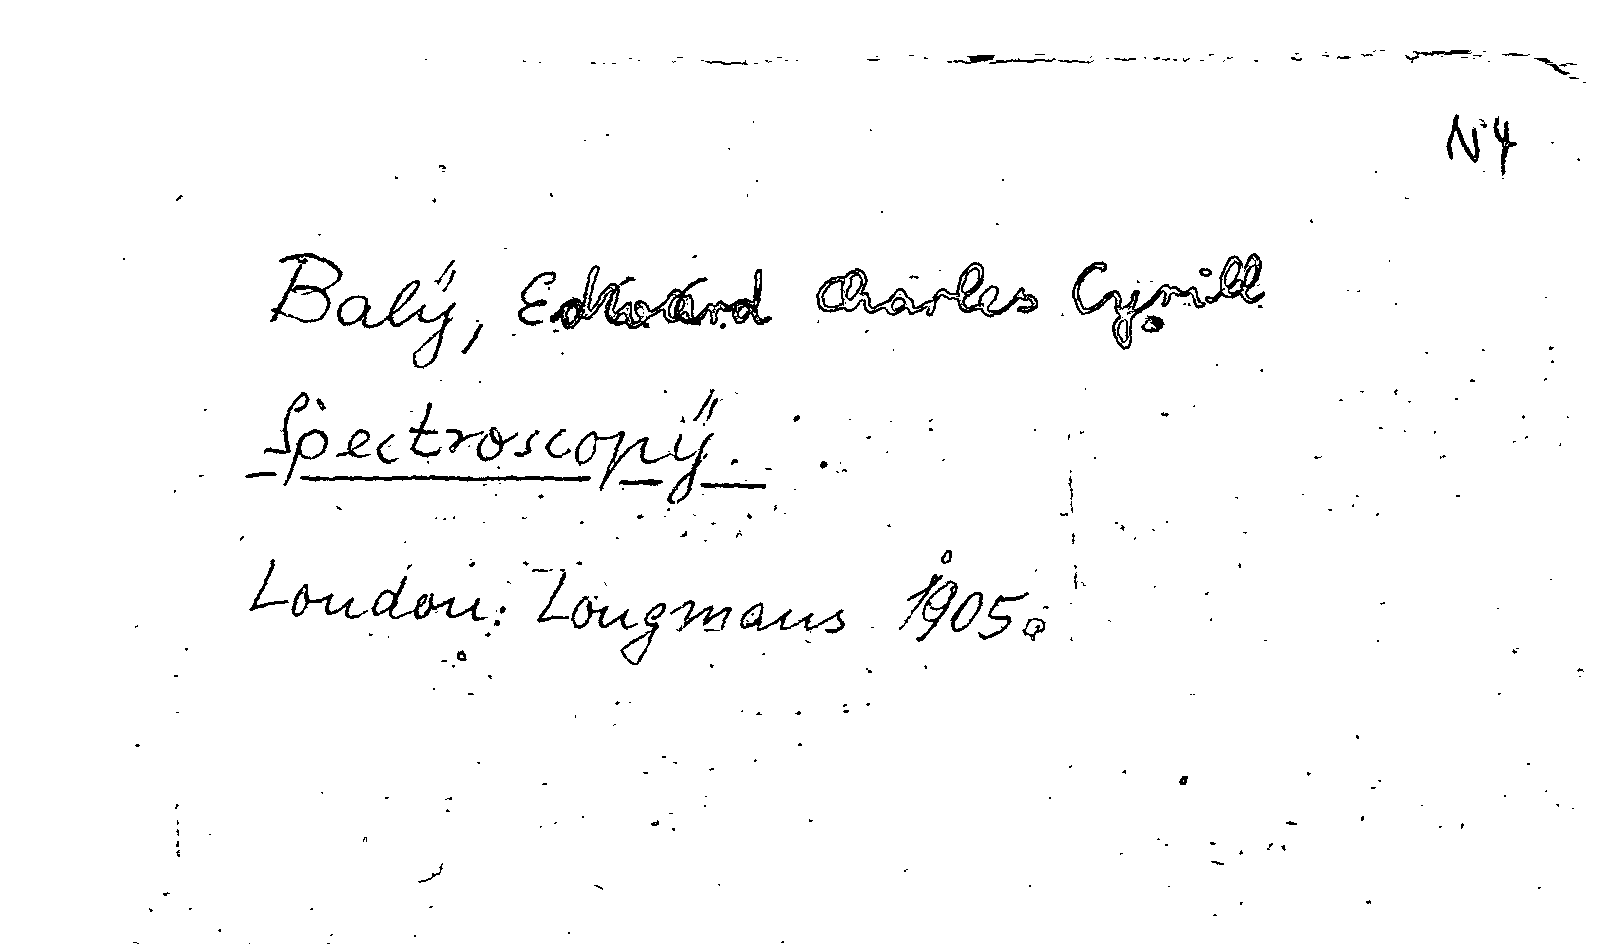 N4
Balÿ, Edward Charles Cyrill
Spectroscopÿ.
London: Longmans 1905.